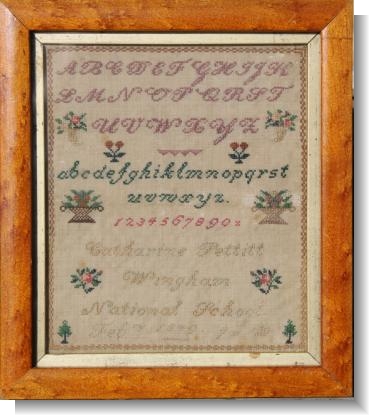 ABCDEFGHIJK
LMNOPQRST
UVWXYZ
abcdefghiklmnopqrst
uvwxyz.
1234567890
Catharine Pettitt
Wingham
National School